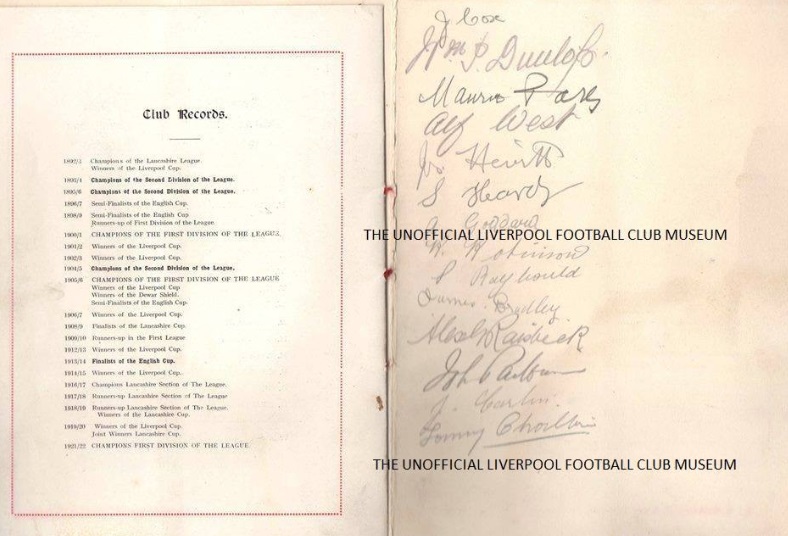 Club Records.
1892/3 Champions of the Lancashire League.
Winners of the Liverpool Cup.
1893/4 Champions of the Second Division of the League.
1895/6 Champions of the Second Division of the League.
1896/7 Semi-Finalists of the English Cup.
1898/9 Semi-Finalists of the English Cup
Runners-up of First Division of the League.
1900/1 CHAMPIONS OF THE FIRST DIVISION OF THE LEAGUE.
1901/2 Winners of the Liverpool Cup.
1902/3 Winners of the Liverpool Cup.
1904/5 Champions of the Second Division of the League.
1905/6 CHAMPIONS OF THE FIRST DIVISION OF THE LEAGUE
Winners of the Liverpool Cup
Winners of the Dewar Shield.
Semi-Finalists of the English Cup.
1906/7 Winners of the Liverpool Cup.
1908/9 Finalists of the Lancashire Cup.
1909/10 Runners-up in the First League
1912/13 Winners of the Liverpool Cup.
1913/14 Finalists of the English Cup.
1914/15 Winners of the Liverpool Cup.
1916/17 Champions Lancashire Section of The League.
1917/18 Runners-up Lancashire Section of The League
1918/19 Runners-up Lancashire Section of The League.
Winners of the Lancashire Cup.
1919/20 Winners of the Liverpool Cup.
Joint Winners Lancashire Cup.
1921/22 CHAMPIONS FIRST DIVISION OF THE LEAGUE.
J Cox
Wm P. Dunlop.
Maurice Parry
Alf West
Hewitt
S Hardy
Goddard
THE UNOFFICIAL LIVERPOOL FOOTBALL CLUB MUSEUM
R. Robinson
S Raybould
James Bradley
Alex Raisbeck
J. Carlin.
Tommy Chorlton
THE UNOFFICIAL LIVERPOOL FOOTBALL CLUB MUSEUM